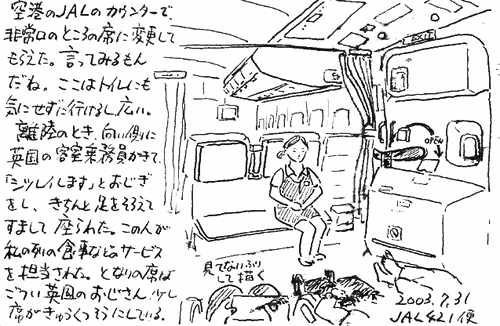 空港のJALのカウンターで
非常口のところの席に変更して
もらえた。言ってみるもん
だね。ここはトイレにも
気にせずに行けるし広い。
離陸のとき、向い側に
英国の客室乗務員がきて、
「シツレイします」とおじぎ
をし、きちんと足をそろえて
すまして座られた。この人が
私の列の食事などのサービス
を担当された。となりの席は
ごつい英国のおじさん。少し
席がきゅうくつそうにしている。
EXIT
OPEN
見てないふり
して描く
2003.7.31
JAL421便